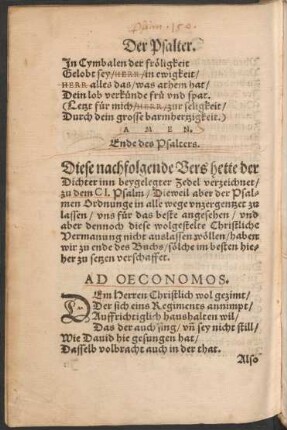 Psalm. 150.
Der Psalter.
Jn Cymbalen der frőligkeit
Gelobt sey/HERR/in ewigkeit/
HERR alles das/was athem hat/
Dein lob verkünde frü vnd spat.
(Letzt für mich/HERR/zur seligkeit/
Durch dein grosse barmhertzigkeit.)
AMEN.
Ende des Psalters.
Diese nachfolgende Vers hette der
Dichter inn beygelegter Zedel verzeichnet/
zu dem CI. Psalm/ Dieweil aber der Psal-
men Ordnunge in alle wege vnzergentzet zu
lassen/ vns für das beste angesehen/ vnd
aber dennoch diese wolgestelte Christliche
Vermanung nicht auslassen wöllen/haben
wir zu ende des Buchs/ sölche im besten hie-
her zu setzen verschaffet.
AD OECONOMOS.
DEm Herren Christlich wol gezimt/
Der sich eins Regiments annimpt/
Auffrichtiglich haushalten wil/
Das der auch sing/ vñ sey nicht still/
Wie Dauid hie gesungen hat/
Dasselb volbracht auch in der that.
Also